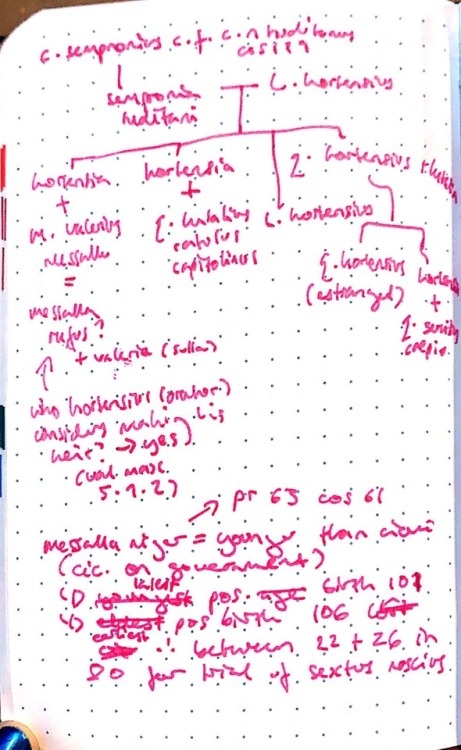 c. sempronius c. f. c. n tuditanus
cos 129
sempronia
tuditani
L. hortensius
hortensia
+
m. valerius
messalla
=
messalla
rufus?
+ valeria (sulla)
hortensia
+
Q. lutatius
catulus
capitolinus
L. hortensius
Q. hortensius +
Q. hortensius
(estranged)
hortensia
+
Q. servilius
caepio
who hortensius (orator)
considering making his
heir? → yes)
(val. max.
5.9.2)
pr 63 cos 61
messalla niger = younger than cicero
(cic. on government)
latest
↳ youngest pos. age birth 101
↳ eldest pos birth 106
earliest
∴ between 22 + 26 in
80 for trial of sextus roscius